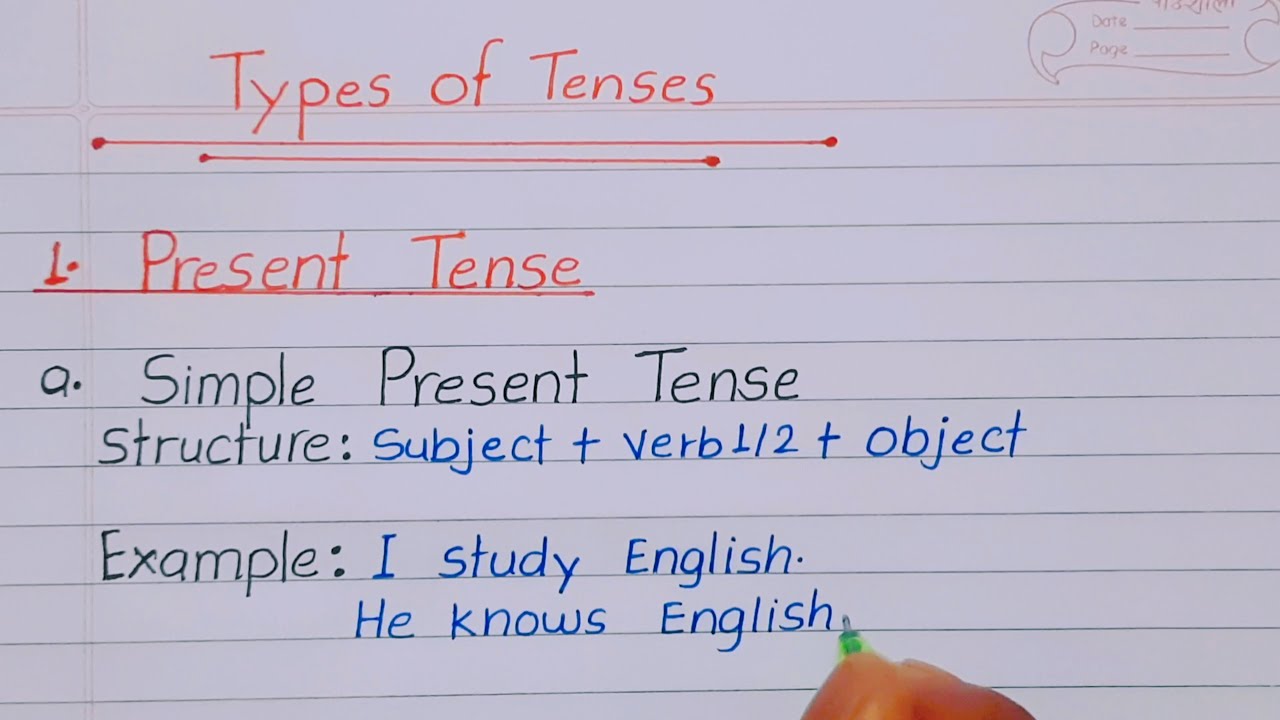 Date
Page
Types of Tenses
1. Present Tense
a. Simple Present Tense
Structure: Subject + Verb 1/2 + Object
Example: I study English.
He knows English.